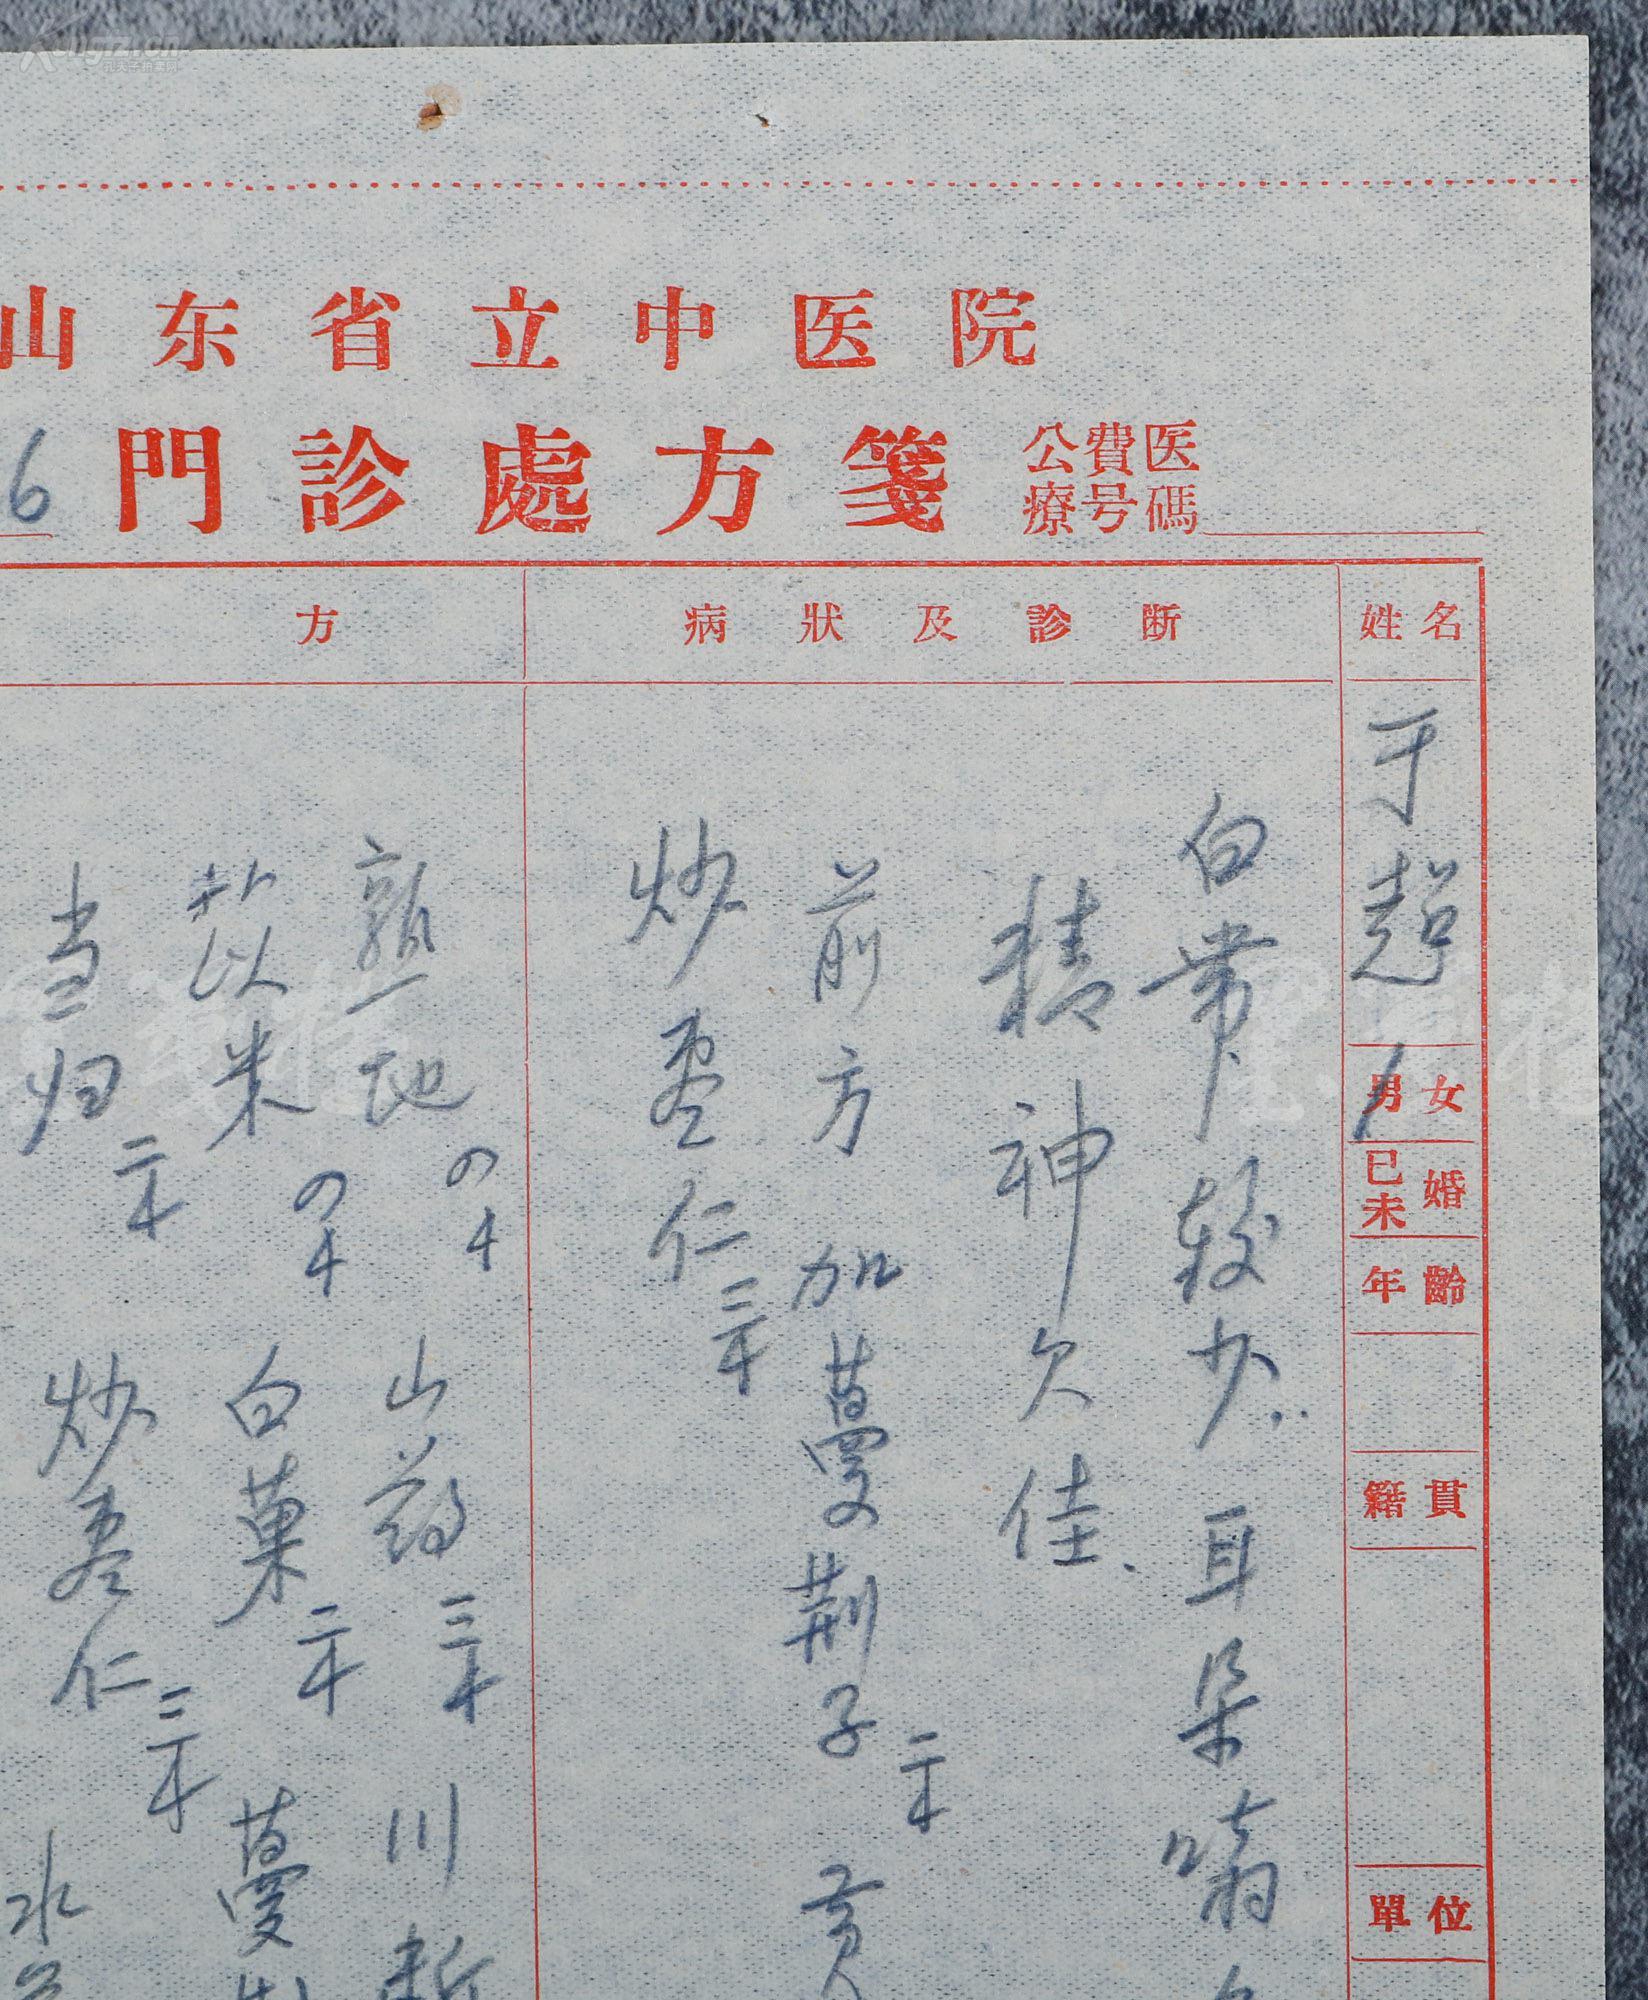 山东省立中医院
6 門診處方箋 公費医療号碼
姓名 于超
男女
已未婚
年齡
籍貫
單位
病狀及診断
白带较少.. 耳朵嗡
精神欠佳.
前方加蔓荆子二十
炒枣仁三十
方
熟地 山药三十 川断
苡米 白菓二十 蔓
当归二十 炒枣仁三十 水
Kongfz.cn
孔夫子拍卖网